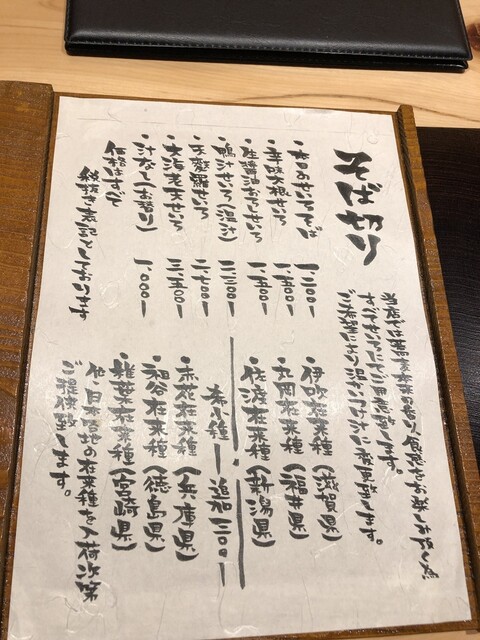 当店では蕎麦本来の香り、食感をお楽しみ頂く為
すべてせいろにてご用意致します。
ご希望により温かいつゆに変更致します。
そば切り
・本日のせいろそば 一.二〇〇ー
・辛味大根せいろ 一.五〇〇ー
せいろ 一.五〇〇ー
・鴨汁せいろ(温汁) 二.二〇〇ー
・天麩羅せいろ 二.七〇〇ー
・大海老天せいろ 三.五〇〇ー
・汁なし(お替り) 一.〇〇〇ー
価格はすべて
税抜き表記としております
・伊吹在来種(滋賀県)
・丸岡在来種(福井県)
・佐渡在来種(新潟県)
希少種ー追加三〇〇ー
・赤花在来種(兵庫県)
・祖谷在来種(徳島県)
・椎葉在来種(宮崎県)
他、日本各地の在来種を入荷次第
ご提供致します。